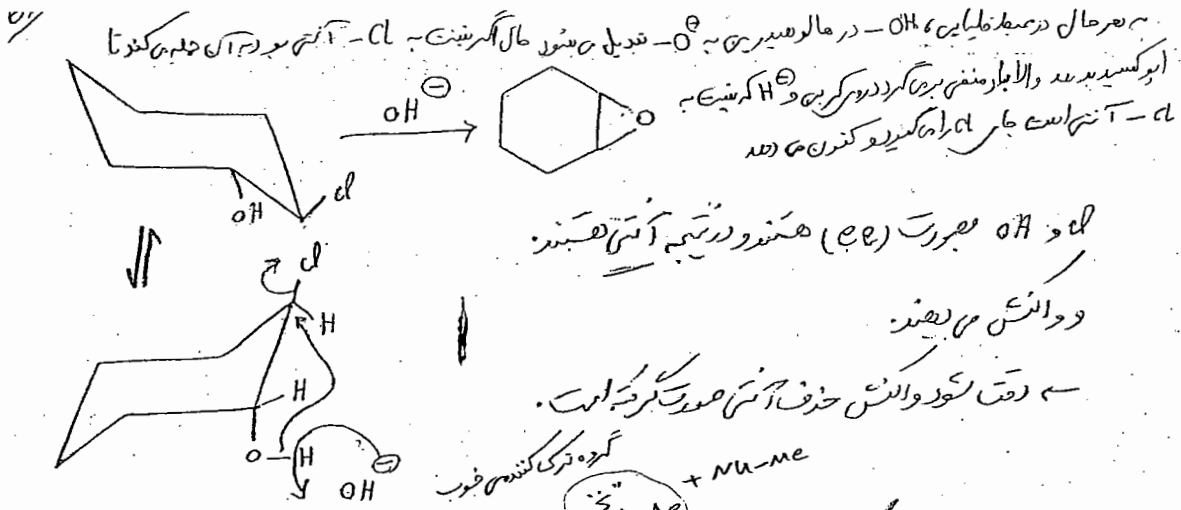 به هر حال در محیط قلیایی، OH – در هالوهیدرین به O⊖ – تبدیل می شود حال اگر نسبت به Cl – آنتی بود به آن حمله می کند تا
اپوکسید بدهد والا بار منفی برمی گردد روی کربن و H⊖ که نسبت به
Cl – آنتی است جای Cl را می گیرد و کتون می دهد
OH⊖
O
OH
Cl
Cl و OH بصورت (e,e) هستند و در نتیجه آنتی هستند.
و واکنش می دهند.
Cl
H
H
O – H
OH⊖
→ دقت شود واکنش حذف آنتی صورت گرفته است.
گروه ترک کننده ی خوب
+ Nu-Me